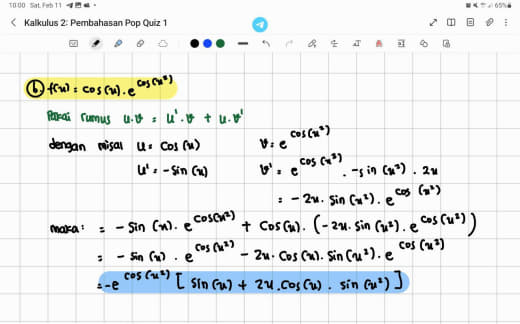 10:00 Sat, Feb 11
65%
Kalkulus 2: Pembahasan Pop Quiz 1
b. f(x) = cos(x) . e^cos(x²)
Pakai rumus u.v = u'.v + u.v'
dengan misal u = cos(x) v = e^cos(x²)
u' = -sin(x) v' = e^cos(x²) . -sin(x²) . 2x
= -2x . sin(x²) . e^cos(x²)
maka: = -sin(x) . e^cos(x²) + cos(x) . (-2x . sin(x²) . e^cos(x²))
= -sin(x) . e^cos(x²) - 2x . cos(x) . sin(x²) . e^cos(x²)
= -e^cos(x²) [sin(x) + 2x . cos(x) . sin(x²)]